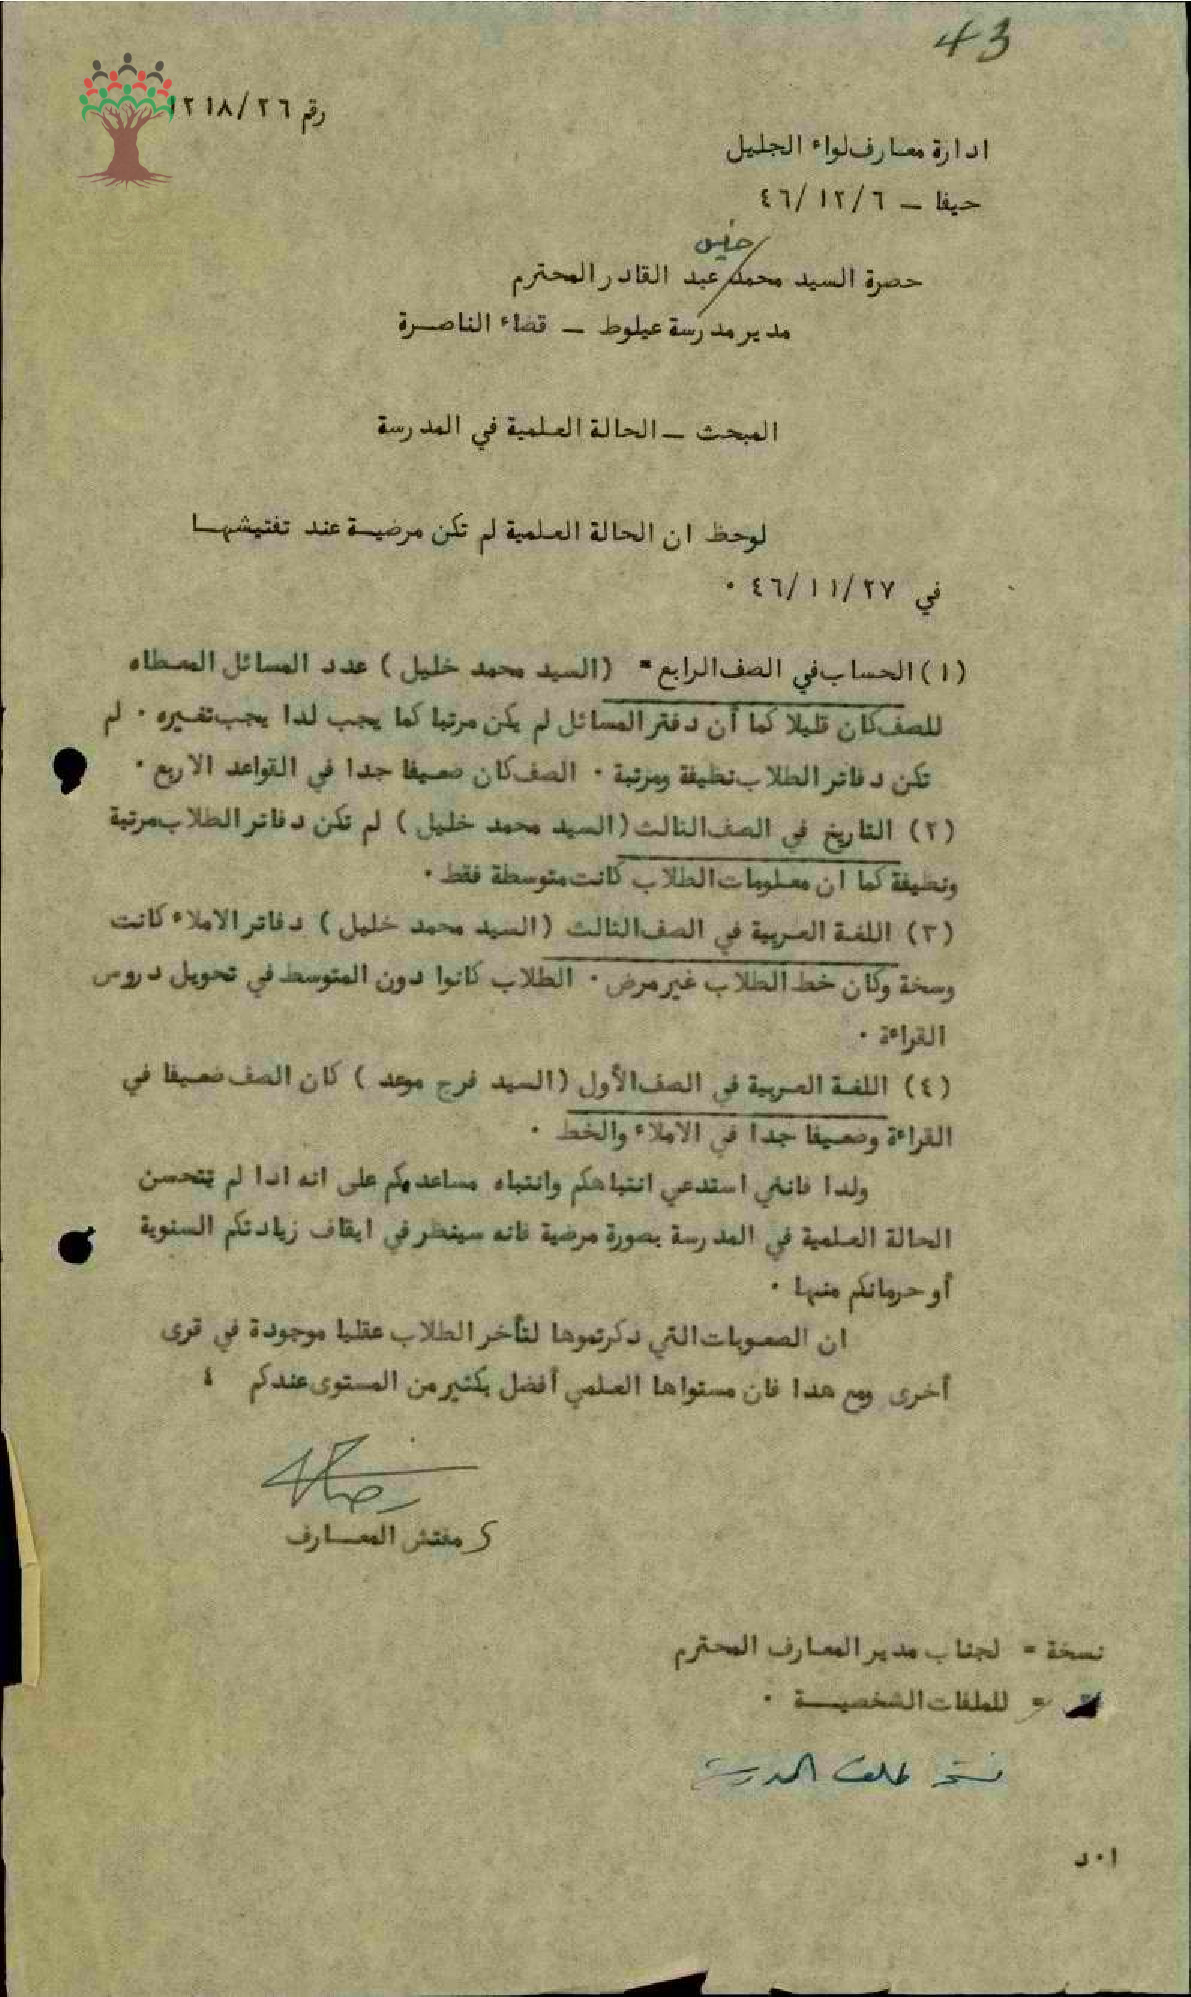 43
رقم ١٢١٨/٢٦
ادارة معارف لواء الجليل
حيفا – ٤٦/١٢/٦
حضرة السيد محمد عبد القادر المحترم
مدير مدرسة عيلوط – قضاء الناصرة
المبحث – الحالة العلمية في المدرسة
لوحظ ان الحالة العلمية لم تكن مرضية عند تفتيشها
في ٤٦/١١/٢٧ ٠
(١) الحساب في الصف الرابع = (السيد محمد خليل) عدد المسائل المعطاه
للصف كان قليلا كما أن دفتر المسائل لم يكن مرتبا كما يجب لدا يجب تغيره ٠ لم
تكن دفاتر الطلاب نظيفة ومرتبة ٠ الصف كان ضعيفا جدا في القواعد الاربع ٠
(٢) التاريخ في الصف الثالث (السيد محمد خليل) لم تكن دفاتر الطلاب مرتبة
ونظيفة كما ان معلومات الطلاب كانت متوسطة فقط ٠
(٣) اللغة العربية في الصف الثالث (السيد محمد خليل) دفاتر الاملاء كانت
وسخة وكان خط الطلاب غير مرض ٠ الطلاب كانوا دون المتوسط في تحويل دروس
القراءة ٠
(٤) اللغة العربية في الصف الأول (السيد فرج موعد) كان الصف ضعيفا في
القراءة وضعيفا جدا في الاملاء والخط ٠
ولدا فانني استدعي انتباهكم وانتباه مساعدكم على انه ادا لم تتحسن
الحالة العلمية في المدرسة بصورة مرضية فانه سينظر في ايقاف زيادتكم السنوية
أو حرمانكم منها ٠
ان الصعوبات التي دكرتموها لتأخر الطلاب عقليا موجودة في قرى
أخرى ومع هدا فان مستواها العلمي أفضل بكثير من المستوى عندكم ٤
مفتش المعارف
نسخة = لجناب مدير المعارف المحترم
= للملفات الشخصية ٠
نسخة لملف المدرسة
ا٠د